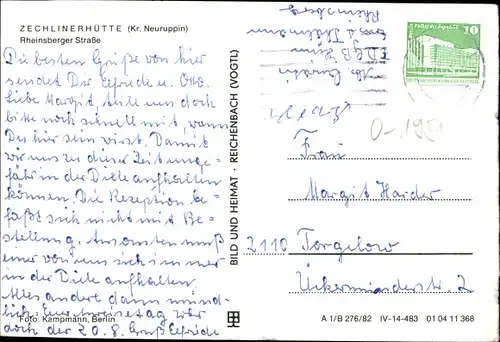 ZECHLINERHÜTTE (Kr. Neuruppin)
Rheinsberger Straße
Die besten Grüße von hier
sendet Dir Elfriede u. Otto.
Liebe Margit, teile uns doch
bitte noch schnell mit, wann
Du hier sein wirst. Damit
wir uns zu dieser Zeit ungefähr
in der Diele aufhalten
können. Die Rezeption be-
faßt sich nicht mit Be-
stellung. Ansonsten muß
einer von uns sich immer
in der Diele aufhalten.
Alles andre dann münd-
lich. Anreisetag war
doch der 20.8. Gruß Elfriede
Foto: Kampmann, Berlin
BILD UND HEIMAT · REICHENBACH (VOGTL)
Abs.
FDGB Heim
E. Thälmann
Rheinsberg
10
O-1951
Frau
Margit Haider
2110 Torgelow
Ückermünderstr. 2
A 1/B 276/82 IV-14-483 01 04 11 368